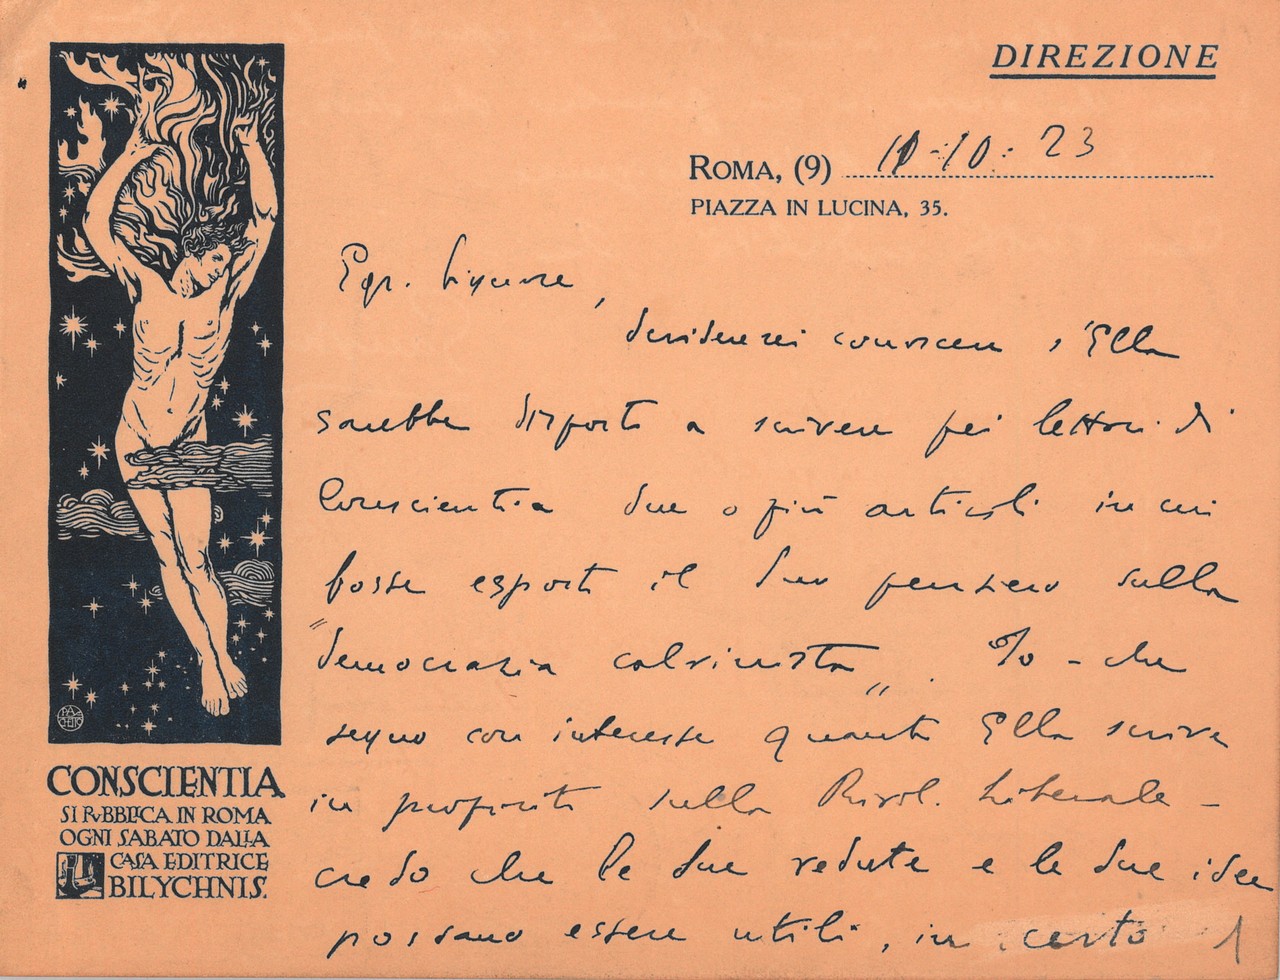 DIREZIONE
ROMA, (9) 11-10-23
PIAZZA IN LUCINA, 35.
Egr. Signore,
desidererei conoscere s'Ella
sarebbe disposto a scrivere pei lettori di
Conscientia due o più articoli in cui
fosse esposto il Suo pensiero sulla
"democrazia calvinista". Io - che
seguo con interesse quanto Ella scrive
in proposito sulla Rivol. Liberale -
credo che le Sue vedute e le Sue idee
possano essere utili, in certo
1
CONSCIENTIA
SI PVBBLICA IN ROMA
OGNI SABATO DALLA
CASA EDITRICE
BILYCHNIS.